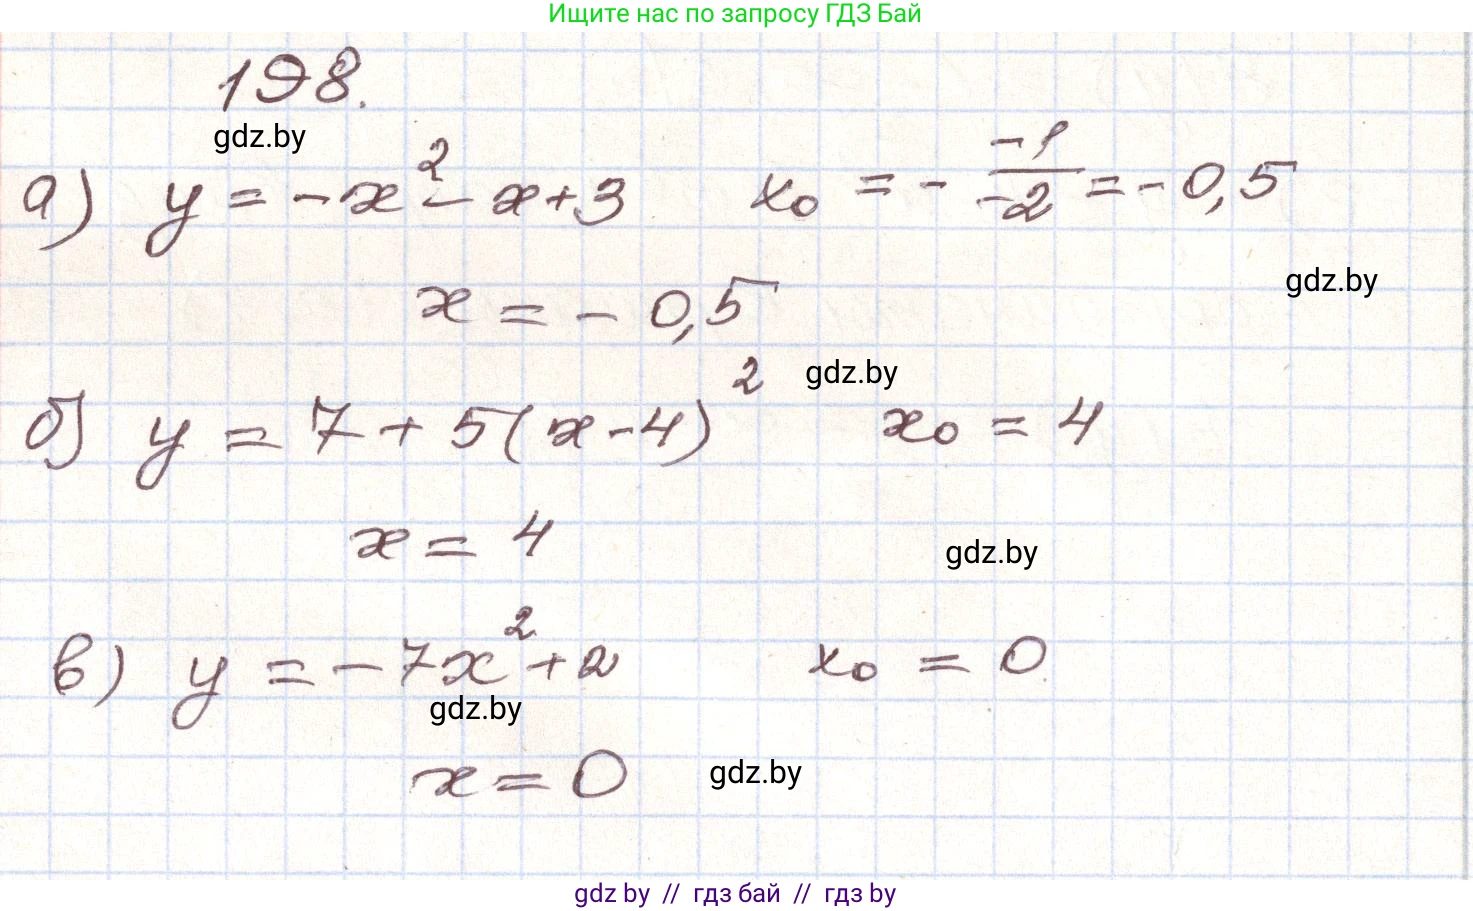 Ищите нас по запросу ГДЗ Бай
198.
gdz.by
а) y = -x² - x + 3 x₀ = - -1/-2 = -0,5
gdz.by
x = -0,5
gdz.by
б) y = 7 + 5(x-4)² x₀ = 4
x = 4
gdz.by
в) y = -7x² + 2 x₀ = 0
gdz.by
x = 0
gdz.by
gdz by // гдз бай // гдз by